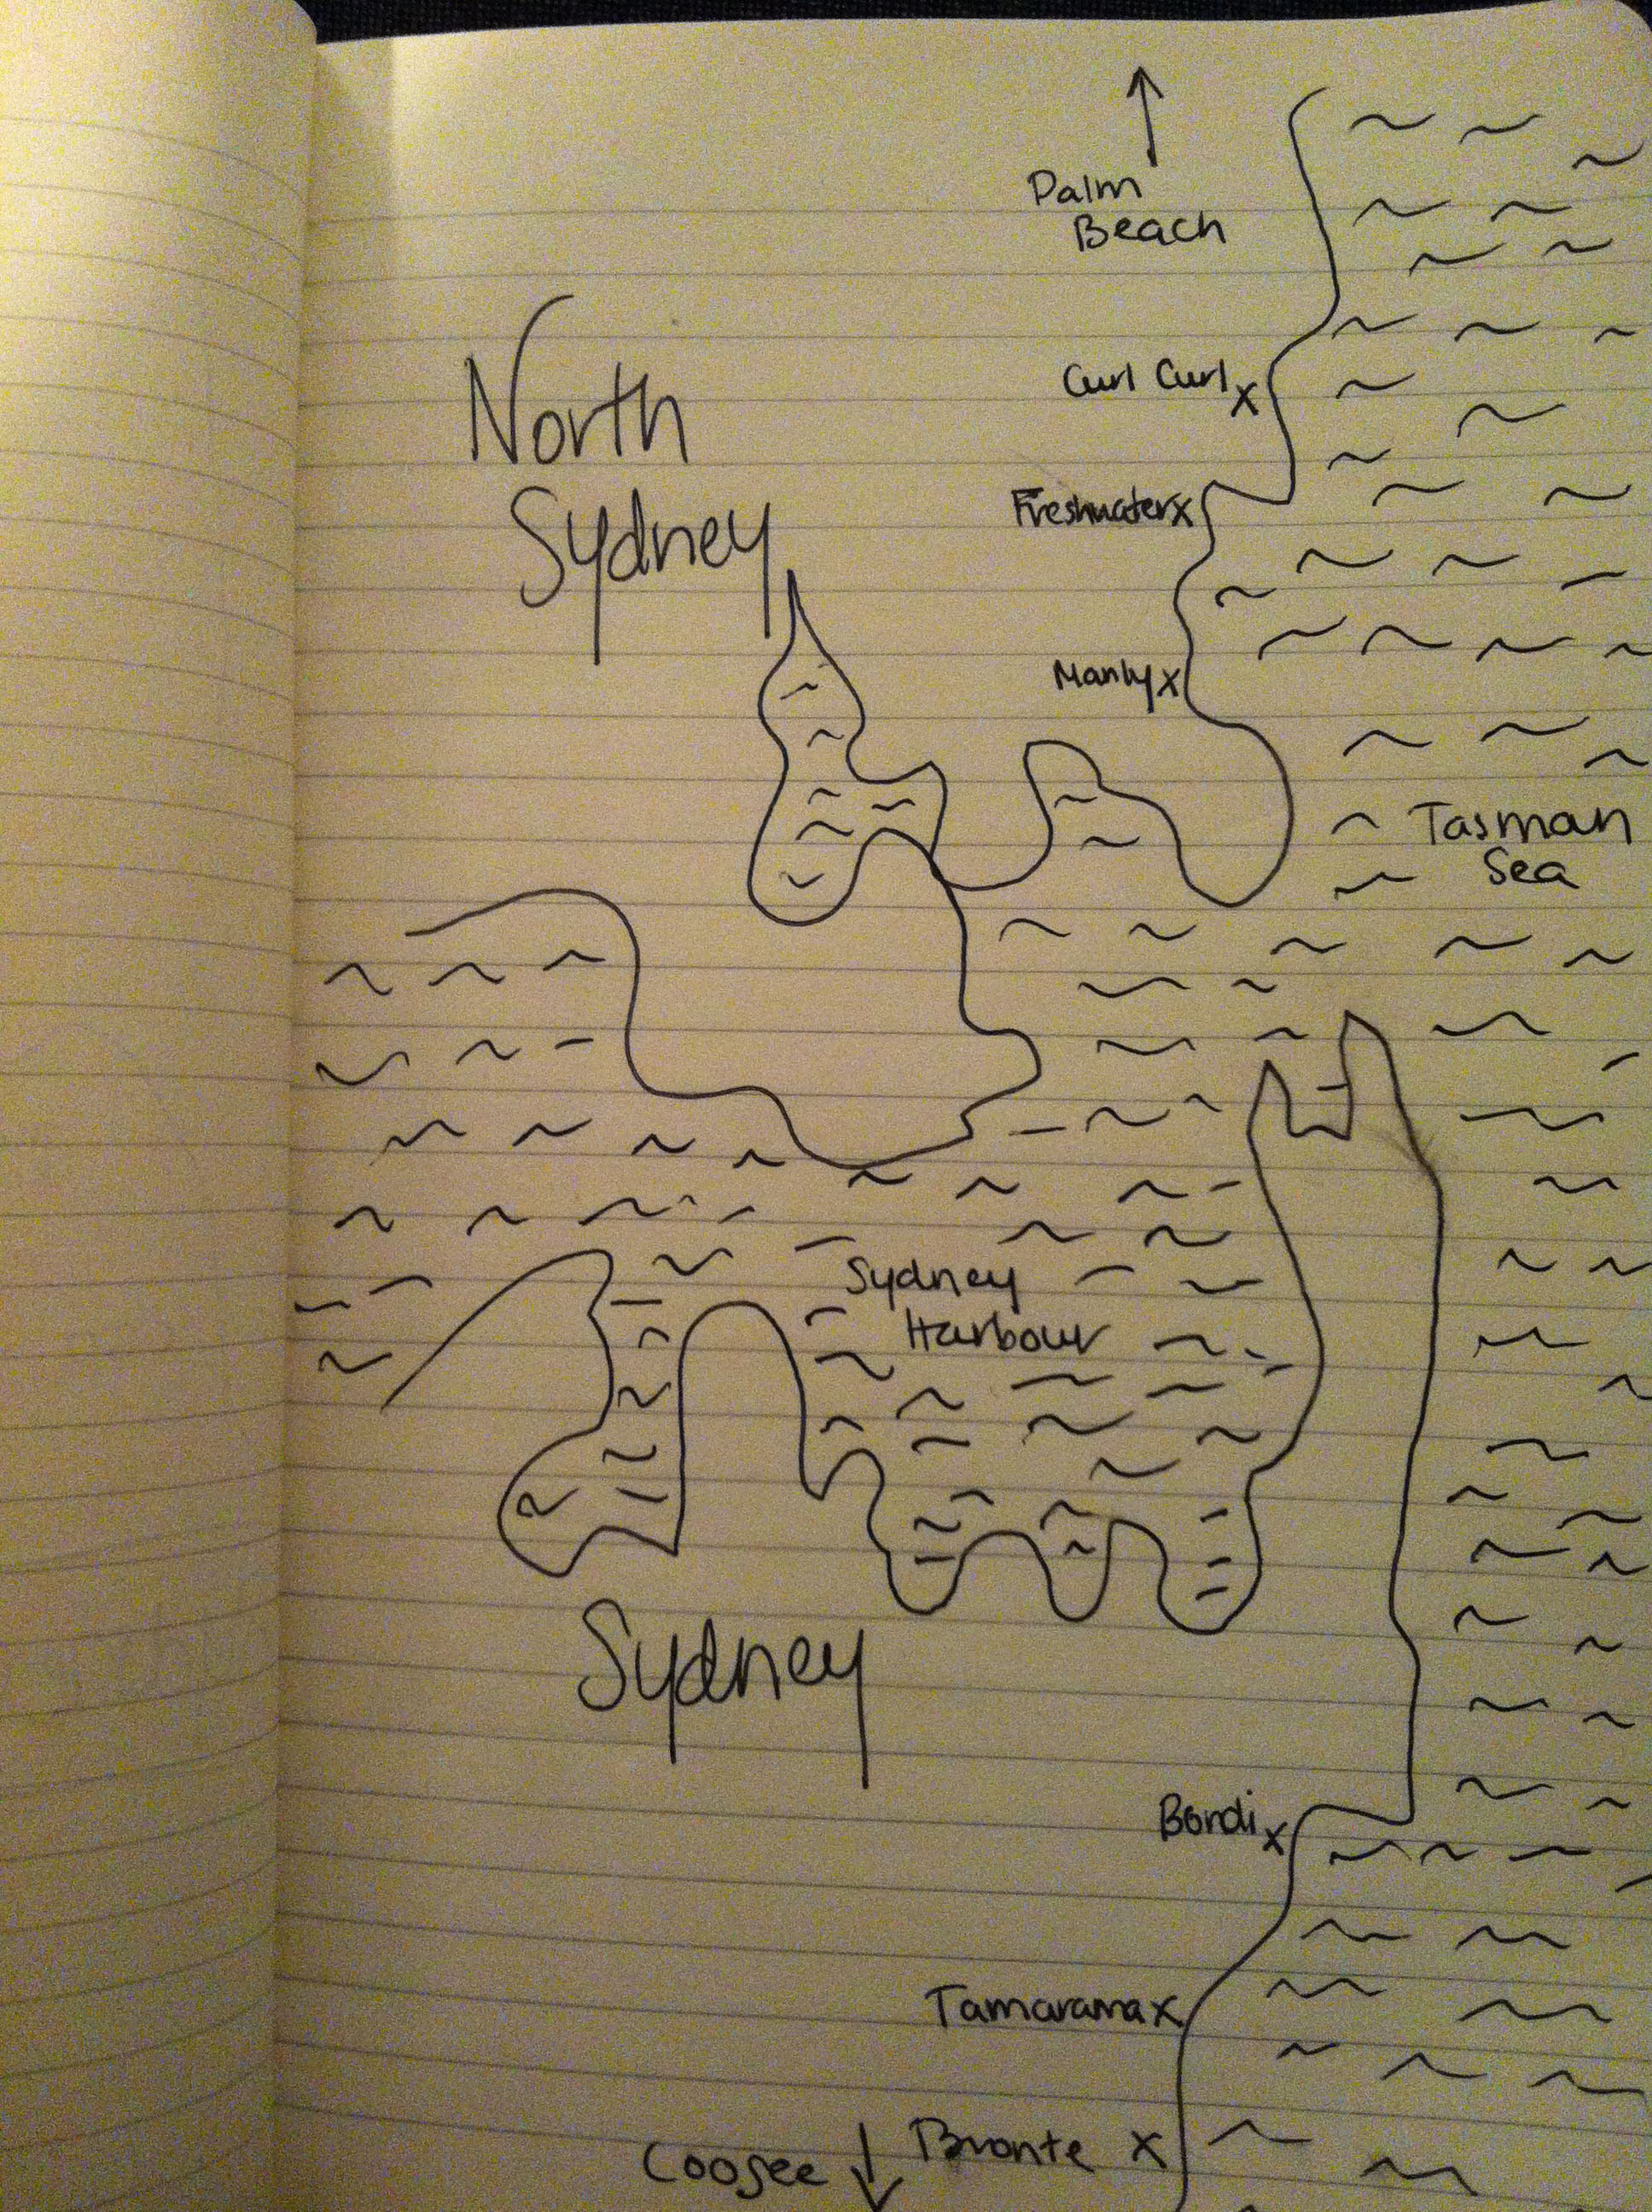 Palm
Beach
North
Sydney
Curl Curl x
Freshwater x
Manly x
Tasman
Sea
Sydney
Harbour
Sydney
Bondi x
Tamarama x
Bronte x
Coogee